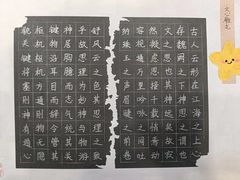 文心雕龙
古人云形在江海之上心
存魏阙之下神思之谓也
文之思也其神远矣故寂
然凝虑思接千载悄焉动
容视通万里吟咏之间吐
纳珠玉之声眉睫之前卷
舒风云之色其思理之致
乎故思理为妙神与物游
神居胸臆而志气统其关
键物沿耳目而辞令管其
枢机枢机方通则物无隐
貌关键将塞则神有遁心